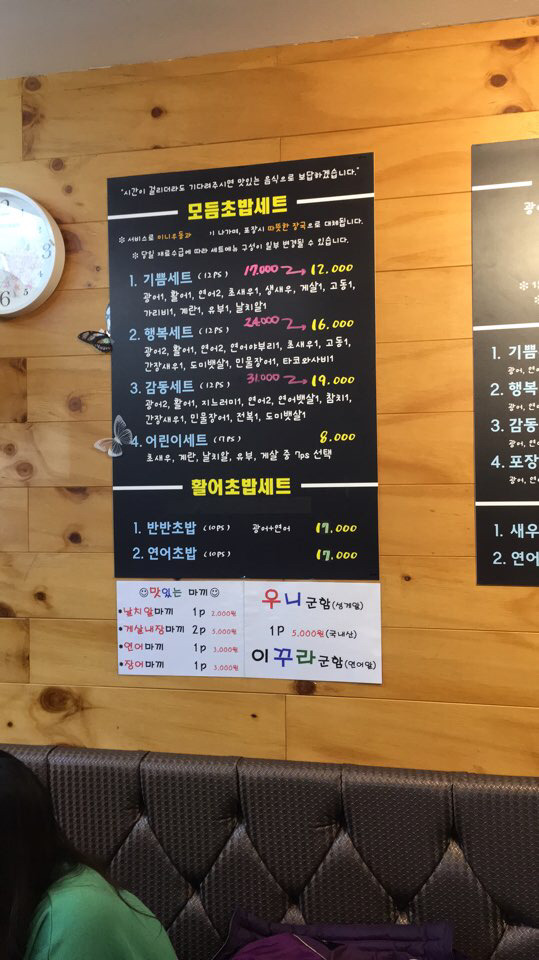 "시간이 걸리더라도 기다려주시면 맛있는 음식으로 보답하겠습니다."
모듬초밥세트
※ 서비스로 미니우동과 이 나가며, 포장시 따뜻한 장국으로 대체됩니다.
※ 당일 재료수급에 따라 세트메뉴 구성이 일부 변경될 수 있습니다.
1. 기쁨세트 (12PS) 17.000 → 12.000
광어1, 활어1, 연어2, 초새우1, 생새우1, 게살1, 고동1,
가리비1, 계란1, 유부1, 날치알1
2. 행복세트 (12PS) 24.000 → 16.000
광어2, 활어1, 연어2, 연어야부리1, 초새우1, 고동1,
간장새우1, 도미뱃살1, 민물장어1, 타코와사비1
3. 감동세트 (12PS) 31.000 → 19.000
광어2, 활어1, 지느러미1, 연어2, 연어뱃살1, 참치1,
간장새우1, 민물장어1, 전복1, 도미뱃살1
4. 어린이세트 (7PS) 8.000
초새우, 계란, 날치알, 유부, 게살 중 7ps 선택
활어초밥세트
1. 반반초밥 (10PS) 광어+연어 17.000
2. 연어초밥 (10PS) 17.000
맛있는 마끼
•날치알마끼 1p 2,000원
•게살내장마끼 2p 5,000원
•연어마끼 1p 3,000원
•장어마끼 1p 3,000원
우니군함(성게알)
1P 5,000원(국내산)
이꾸라군함(연어알)
1. 기쁨
광어, 연어
2. 행복
광어, 연어
3. 감동
광어, 연어
4. 포장
광어, 연어
1. 새우
2. 연어